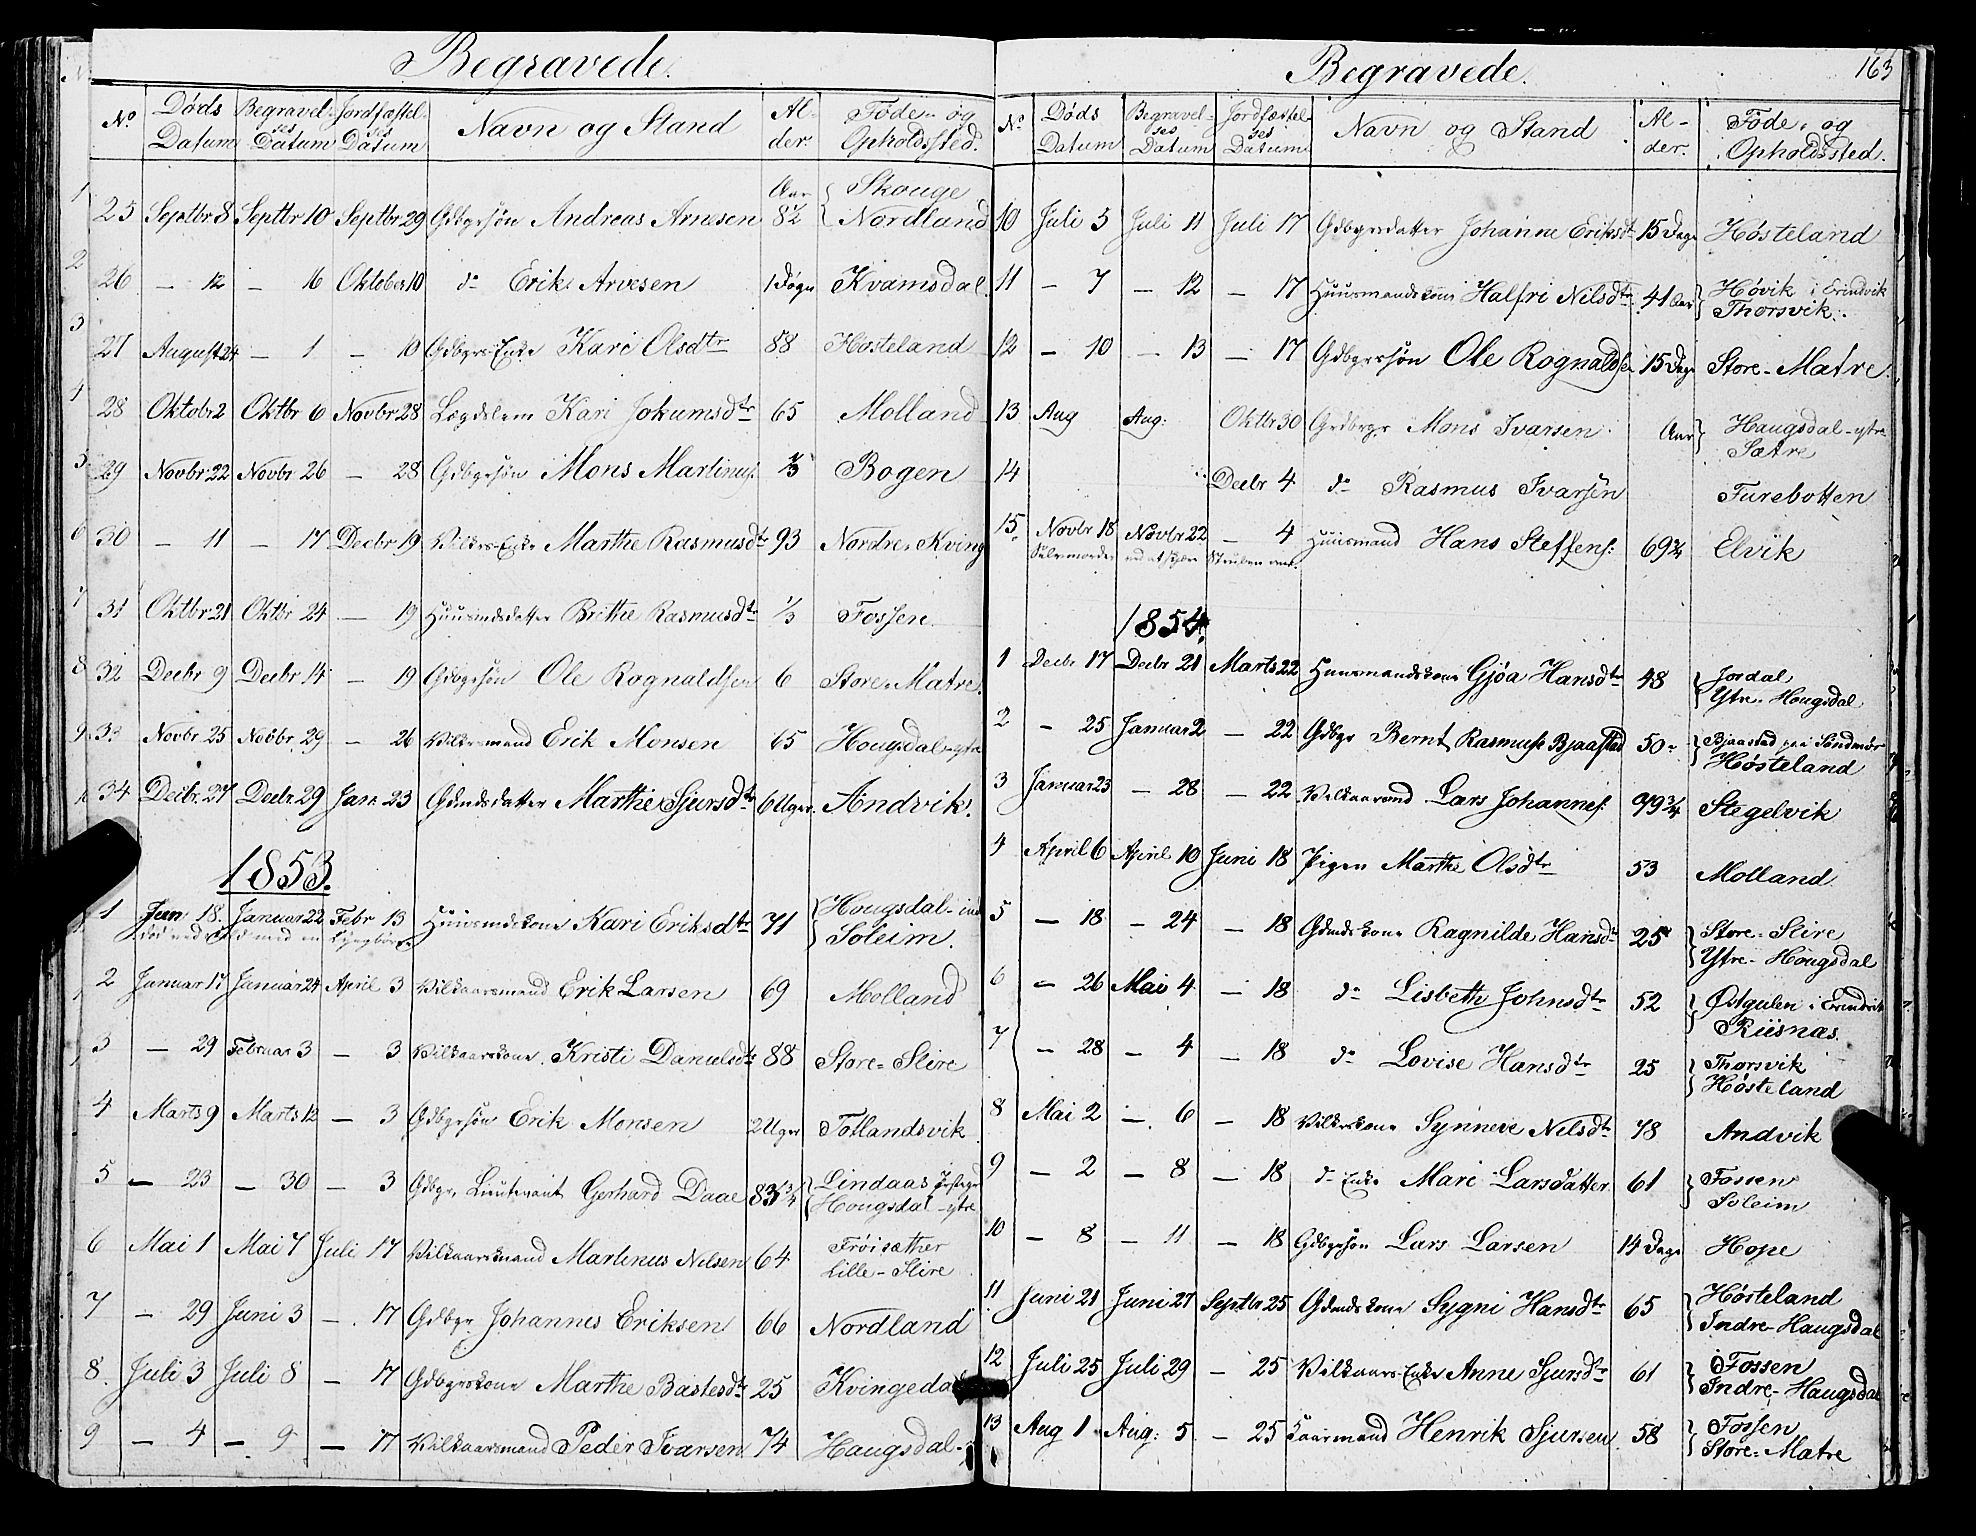 Begravede.
No Døds Datum Begravelses Datum Jordfæstelses Datum Navn og Stand Alder Føde- og Opholdssted.
25 Septbr 8 Septbr 10 Septbr 29 Gdbgrsøn Andreas Arnesen Aar 82 Skouge Nordland
26 — 12 — 16 Oktober 10 do Erik Arnesen 1 Døgn Kvamsdal
27 August 24 — 1 — 10 Gdbgrs Enke Kari Olsdtr 88 Hosteland
28 Oktobr 2 Oktbr 6 Novbr 28 Lægdslem Kari Jokumsdtr 65 Molland
29 Novbr 22 Novbr 26 — 28 Gdbgrsøn Mons Martinus: Bogen
30 — 11 — 17 Decbr 19 Vilkrs Enke Marthe Rasmusdtr 93 Nordre-Kving
31 Oktbr 21 Oktbr 24 — 19 Huusmdsdatter Brithe Rasmusdtr 1/3 Fossen
32 Decbr 9 Decbr 14 — 19 Gdbgrsøn Ole Rognaldsen 6 Store-Matre.
33 Novbr 25 Novbr 29 — 26 Vilkrsmand Erik Monsen 65 Hougsdal-ytre
34 Decbr. 27 Decbr. 29 Janr 23 Gdmdsdatter Marthe Sjursdtr 6 Uger. Andvik.
1853.
1 Jan 18. Januar 22 Febr 13 Huusmdskone Kari Eriksdtr 71 Hougsdal-ind Soleim.
2 Januar 17 Januar 24 April 3 Vilkaarsmand Erik Larsen 69 Molland
3 — 29 Februar 3 — 3 Vilkaarskone Kristi Danielsdtr 88 Store-Stire
4 Marts 9 Marts 12 — 3 Gdbgrsøn Erik Monsen 2 Uger Totlandsvik
5 — 23 — 30 — 3 Gdbgr. Lieutenant Gerhard Daae 83 3/4 Lindaas Prstgd Hougsdal-ytre
6 Mai 1 Mai 7 Juli 17 Vilkaarsmand Martinus Nilsen 64 Frøisæther Lille-Stire
7 — 29 Juni 3 — 17 Gdbgr Johannes Eriksen 66 Nordland
8. Juli 3 Juli 8 — 17 Gdbgrskone Marthe Bastesdtr 25 Kvingedal
9 — 4 — 9 — 17 Vilkaarsmand Peder Ivarsen 74 Haugsdal-
Begravede. 163
No Døds Datum Begravelses Datum Jordfæstelses Datum Navn og Stand Alder. Føde- og Opholdssted.
10 Juli 5 Juli 11 Juli 17 Gdbgrsdatter Johanne Eriksdtr 15 Dage Høsteland
11 — 7 — 12 — 17 Huusmandskone Halfri Nilsdtr 41 Aar Høvik i Evindvik Thorsvik.
12 — 10 — 13 — 17 Gdbgrsøn Ole Rognaldsen 15 Dage Store-Matre.
13 Aug Aug: Oktbr 30 Grdbrgr Mons Ivarsen Aar Haugsdal-ytre Sætre
14 Decbr 4 do Rasmus Ivarsen Furebotten
15. Novbr 18 Novbr 22 — 4 Huusmand Hans Steffens: 69 3/4 Elvik
Selvmorder ved at skjære Struben over.
1854.
1 Decbr 17 Decbr 21 Marts 22 Huusmandskone Gjøa Hansdtr 48 Jordal Ytre-Hougsdal
2 — 25 Januar 2 — 22 Gdbgr Bernt Rasmuss Bjaastad 50 Bjaastad paa Søndmør Høsteland
3 Januar 23 — 28 — 22 Vilkaarmd Lars Johannes: 79 3/4 Stegelvik
4 April 6 April 10 Juni 18 Pigen Marthe Olsdtr 53 Molland
5 — 18 — 24 — 18 Gdmdskone Ragnilde Hansdtr 25 Store-Stire Ytre-Hougsdal
6 — 26 Mai 4 — 18 do Lisbeth Johnsdtr 52 Østgulen i Evindvik Riisnæs.
7 — 28 — 4 — 18 do Lovise Hansdtr 25 Thorsvik Høsteland
8 Mai 2 — 6 — 18 Vilkrskone Synneve Nilsdtr 78 Andvik
9 — 2 — 8 — 18 do Enke Mari Larsdatter 61 Fossen Soleim
10 — 8 — 11 — 18 Gdbgrsøn Lars Larsen 14 Dage Hope
11 Juni 21 Juni 27 Septbr 25 Gdmdskone Sygni Hansdtr 65 Høsteland Indre-Haugsdal
12 Juli 25 Juli 29 — 25 Vilkaars-Enke Anne Sjursdtr 61 Fossen Indre-Haugsdal
13 Aug 1 Aug: 5 — 25 Kaarmand Henrik Sjursen 58 Fossen Store-Matre